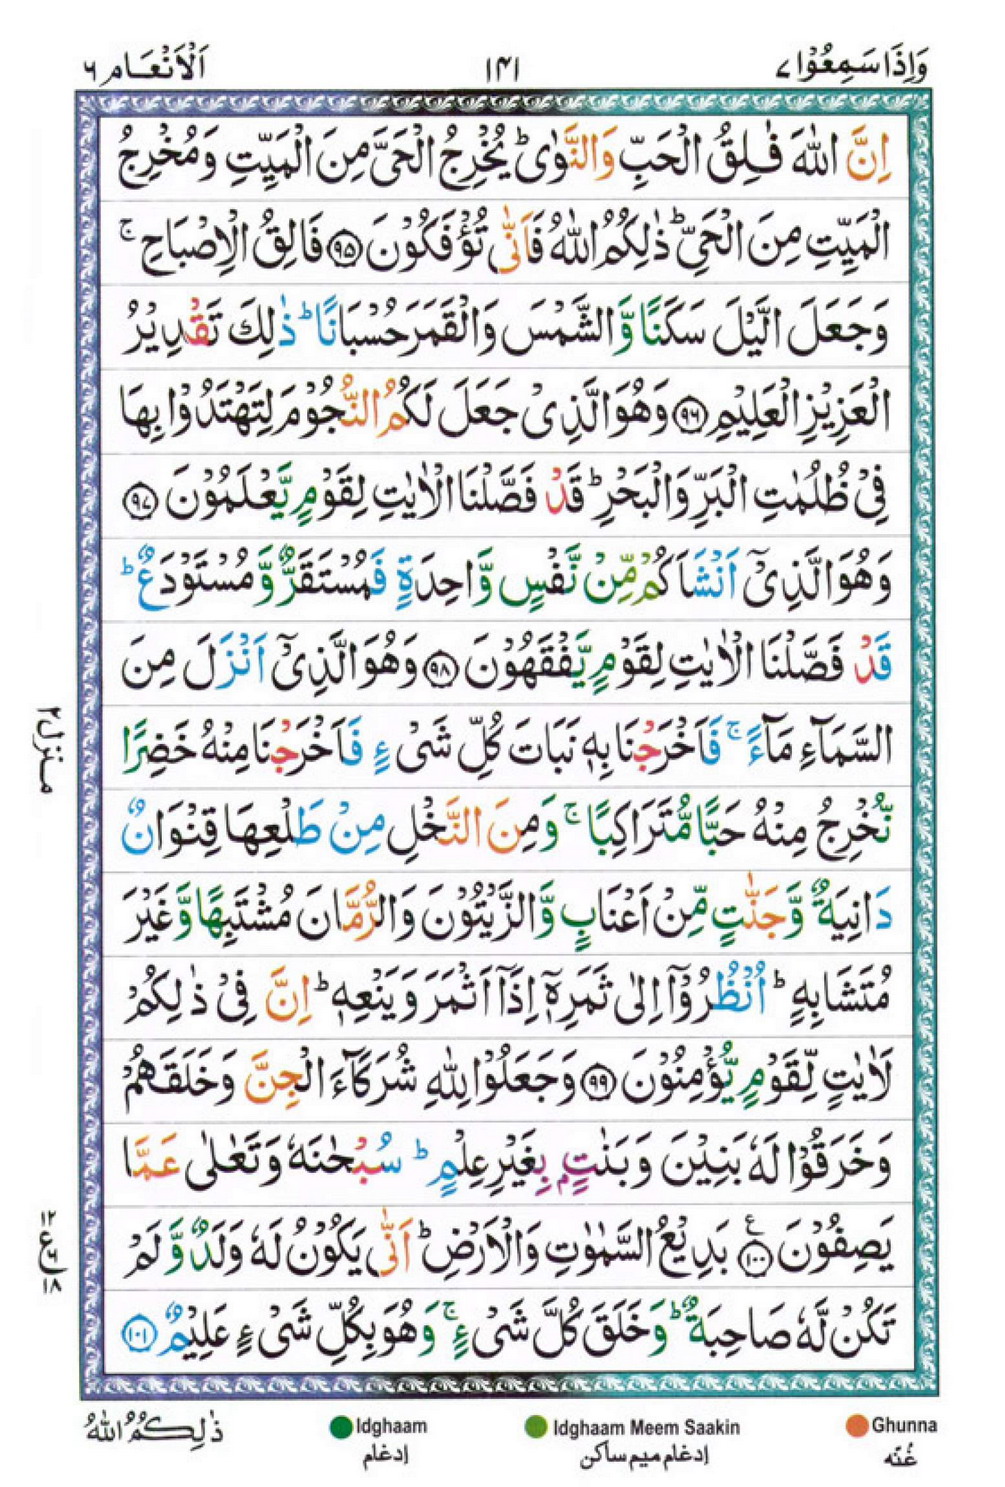 وَاِذَا سَمِعُوْا ٧ ١٤١ اَلْاَنْعَام ٦
اِنَّ اللّٰهَ فٰلِقُ الْحَبِّ وَالنَّوٰی ؕ یُخْرِجُ الْحَیَّ مِنَ الْمَیِّتِ وَمُخْرِجُ
الْمَیِّتِ مِنَ الْحَیِّ ؕ ذٰلِكُمُ اللّٰهُ فَاَنّٰی تُؤْفَكُوْنَ ﴿٩٥﴾ فَالِقُ الْاِصْبَاحِ ۚ
وَجَعَلَ الَّیْلَ سَكَنًا وَّالشَّمْسَ وَالْقَمَرَ حُسْبَانًا ؕ ذٰلِكَ تَقْدِیْرُ
الْعَزِیْزِ الْعَلِیْمِ ﴿٩٦﴾ وَهُوَ الَّذِیْ جَعَلَ لَكُمُ النُّجُوْمَ لِتَهْتَدُوْا بِهَا
فِیْ ظُلُمٰتِ الْبَرِّ وَالْبَحْرِ ؕ قَدْ فَصَّلْنَا الْاٰیٰتِ لِقَوْمٍ یَّعْلَمُوْنَ ﴿٩٧﴾
وَهُوَ الَّذِیْۤ اَنْشَاَكُمْ مِّنْ نَّفْسٍ وَّاحِدَةٍ فَمُسْتَقَرٌّ وَّمُسْتَوْدَعٌ ؕ
قَدْ فَصَّلْنَا الْاٰیٰتِ لِقَوْمٍ یَّفْقَهُوْنَ ﴿٩٨﴾ وَهُوَ الَّذِیْۤ اَنْزَلَ مِنَ
السَّمَآءِ مَآءً ۚ فَاَخْرَجْنَا بِهٖ نَبَاتَ كُلِّ شَیْءٍ فَاَخْرَجْنَا مِنْهُ خَضِرًا
نُّخْرِجُ مِنْهُ حَبًّا مُّتَرَاكِبًا ۚ وَمِنَ النَّخْلِ مِنْ طَلْعِهَا قِنْوَانٌ
دَانِیَةٌ وَّجَنّٰتٍ مِّنْ اَعْنَابٍ وَّالزَّیْتُوْنَ وَالرُّمَّانَ مُشْتَبِهًا وَّغَیْرَ
مُتَشَابِهٍ ؕ اُنْظُرُوْۤا اِلٰی ثَمَرِهٖۤ اِذَاۤ اَثْمَرَ وَیَنْعِهٖ ؕ اِنَّ فِیْ ذٰلِكُمْ
لَاٰیٰتٍ لِّقَوْمٍ یُّؤْمِنُوْنَ ﴿٩٩﴾ وَجَعَلُوْا لِلّٰهِ شُرَكَآءَ الْجِنَّ وَخَلَقَهُمْ
وَخَرَقُوْا لَهٗ بَنِیْنَ وَبَنٰتٍۭ بِغَیْرِ عِلْمٍ ؕ سُبْحٰنَهٗ وَتَعٰلٰی عَمَّا
یَصِفُوْنَ ﴿١٠٠﴾ ع بَدِیْعُ السَّمٰوٰتِ وَالْاَرْضِ ؕ اَنّٰی یَكُوْنُ لَهٗ وَلَدٌ وَّلَمْ
تَكُنْ لَّهٗ صَاحِبَةٌ ؕ وَخَلَقَ كُلَّ شَیْءٍ ۚ وَهُوَ بِكُلِّ شَیْءٍ عَلِیْمٌ ﴿١٠١﴾
منزل ٢
١٢
ع ٦
١٨
Ghunna Idghaam Meem Saakin Idghaam ذٰلِكُمُ اللّٰهُ
غُنّه إدغام ميم ساكن إدغام